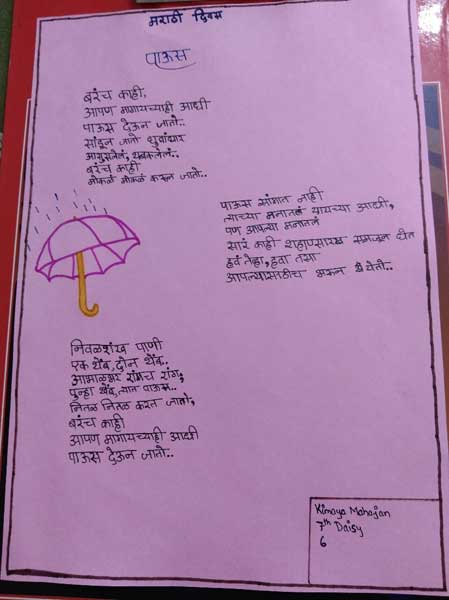 मराठी दिवस
पाऊस
बरंच काही,
आपण मागायच्याही आधी
पाऊस देऊन जातो..
सांडून जातो धुवांधार
आसुसलेलं, थबकलेलं..
बरंच काही
मोकळं मोकळं करून जातो..
पाऊस सांगत नाही
त्याच्या मनातलं यायच्या आधी,
पण आपल्या मनातलं
सारं काही शहाण्यासारखं समजून घेत
हवं तेव्हा, हवा तसा
आपल्यासाठीच भरून येतो..
निवळशंख पाणी
एक थेंब, दोन थेंब..
आभाळभर रांगच रांग,
पुन्हा थेंब, त्यात पाऊस..
नितळ नितळ करत जातो,
बरंच काही
आपण मागायच्याही आधी
पाऊस देऊन जातो..
Kimaya Mahajan
7th Daisy
6